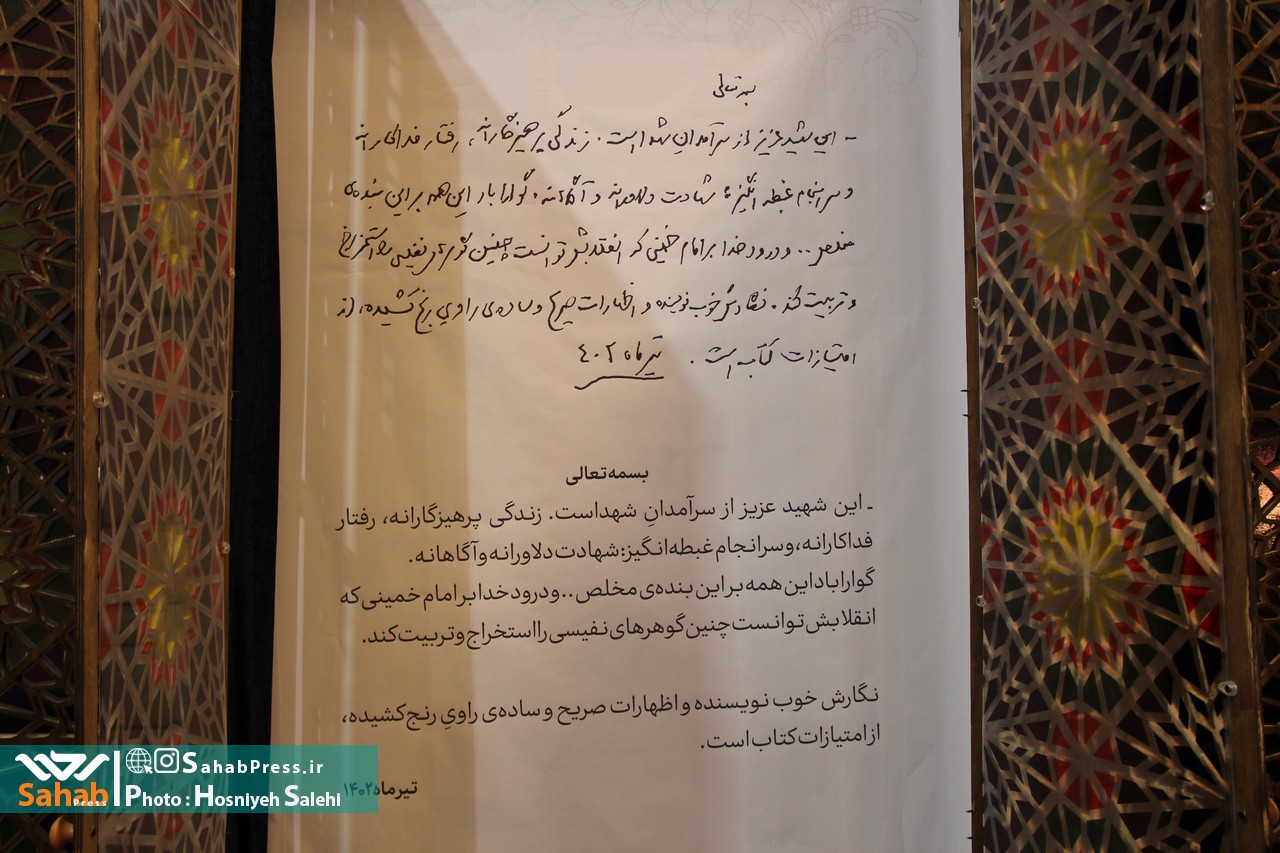 بسمه تعالی
ـ این شهید عزیز از سرآمدان شهداست. زندگی پرهیزگارانه، رفتار فداکارانه
و سرانجام غبطه انگیز: شهادت دلاورانه و آگاهانه. گوارا باد این همه بر این بنده‌ی
مخلص .. و درود خدا بر امام خمینی که انقلابش توانست چنین گوهرهای نفیسی را استخراج
و تربیت کند. نگارش خوب نویسنده و اظهارات صریح و ساده‌ی راوی رنج کشیده، از
امتیازات کتاب است. تیرماه ۴۰۲
بسمه تعالی
ـ این شهید عزیز از سرآمدانِ شهداست. زندگی پرهیزگارانه، رفتار
فداکارانه، و سرانجام غبطه انگیز: شهادت دلاورانه و آگاهانه.
گوارا باد این همه بر این بنده‌ی مخلص .. و درود خدا بر امام خمینی که
انقلابش توانست چنین گوهرهای نفیسی را استخراج و تربیت کند.
نگارش خوب نویسنده و اظهارات صریح و ساده‌ی راویِ رنج کشیده،
از امتیازات کتاب است.
تیرماه ۱۴۰۲
SahabPress.ir
سحاب
Sahab Press
Photo : Hosniyeh Salehi